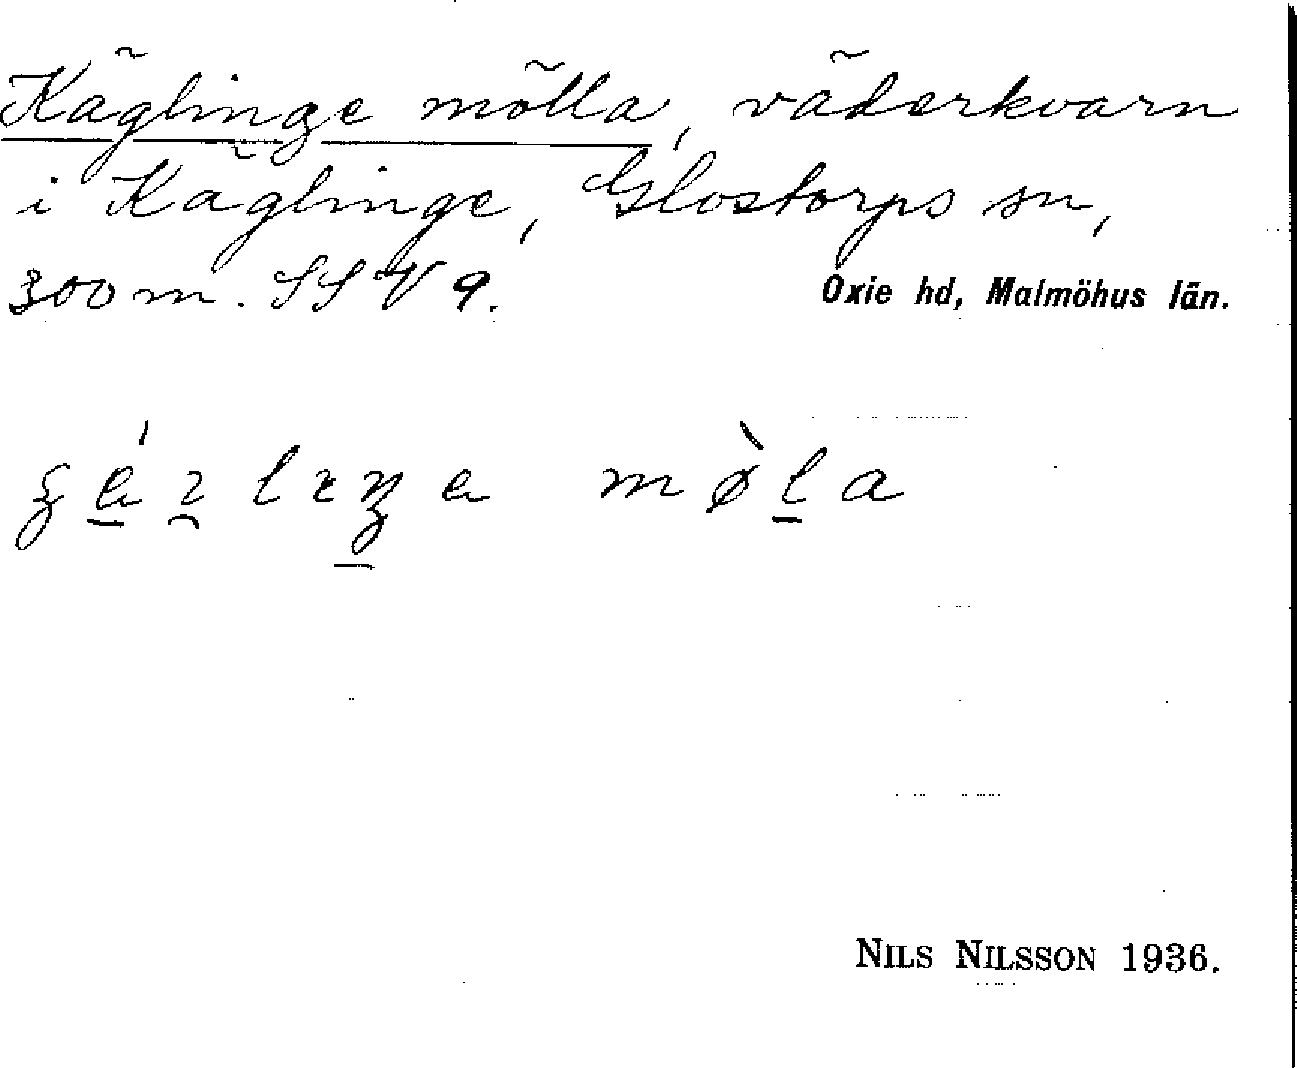 Käglinge mölla, väderkvarn
i Käglinge, Glostorps sn,
300 m. SSV 9.
Oxie hd, Malmöhus län.
mø̀l̲a
NILS NILSSON 1936.